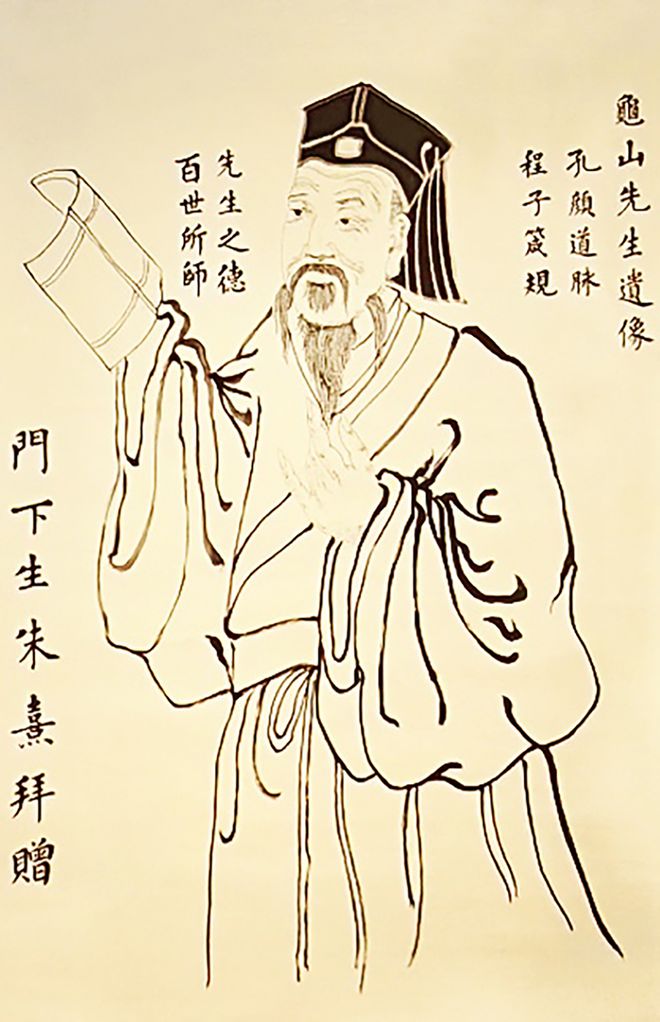 龜山先生遺像
孔顔道脉
程子箴規
先生之德
百世所師
門下生朱熹拜贈